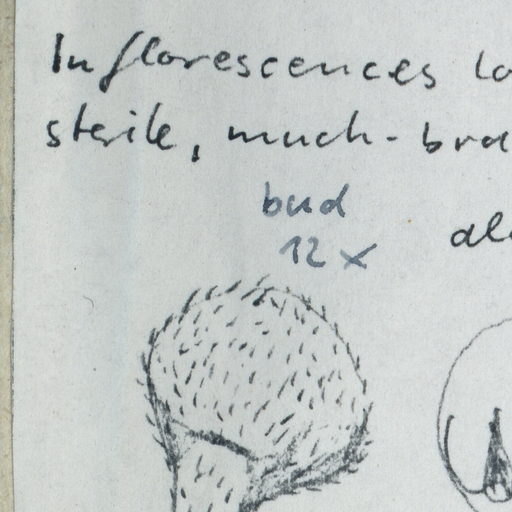 Inflorescences
sterile, much-
bud
12 x